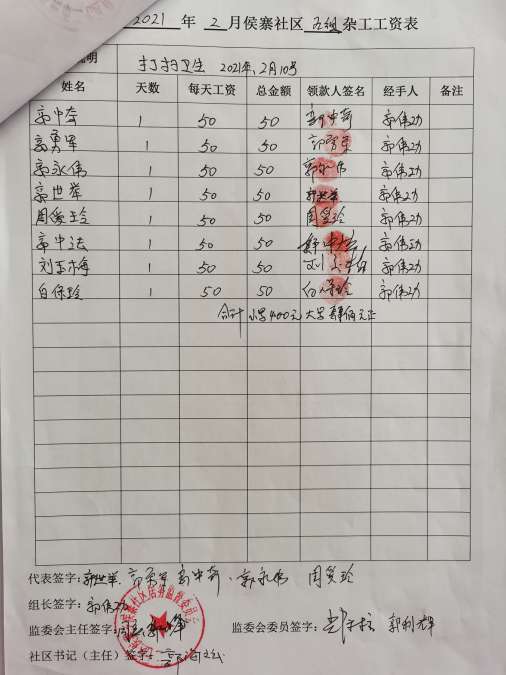 2021 年 2 月侯寨社区 五组 杂工工资表
说明 打扫卫生 2021年2月10号
姓名 天数 每天工资 总金额 领款人签名 经手人 备注
郭中奇 1 50 50 郭中奇 郭伟功
郭勇军 1 50 50 郭勇军 郭伟功
郭永伟 1 50 50 郭永伟 郭伟功
郭世举 1 50 50 郭世举 郭伟功
周爱玲 1 50 50 周爱玲 郭伟功
郭中法 1 50 50 郭伟功
刘玉梅 1 50 50 刘玉梅 郭伟功
白保玲 1 50 50 白保玲 郭伟功
合计 小写400元 大写肆佰元正
代表签字: 郭世举 郭勇军 郭中奇 郭永伟 周爱玲
组长签字: 郭伟功
监委会主任签字: 监委会委员签字: 郭利辉
社区书记（主任）签字: